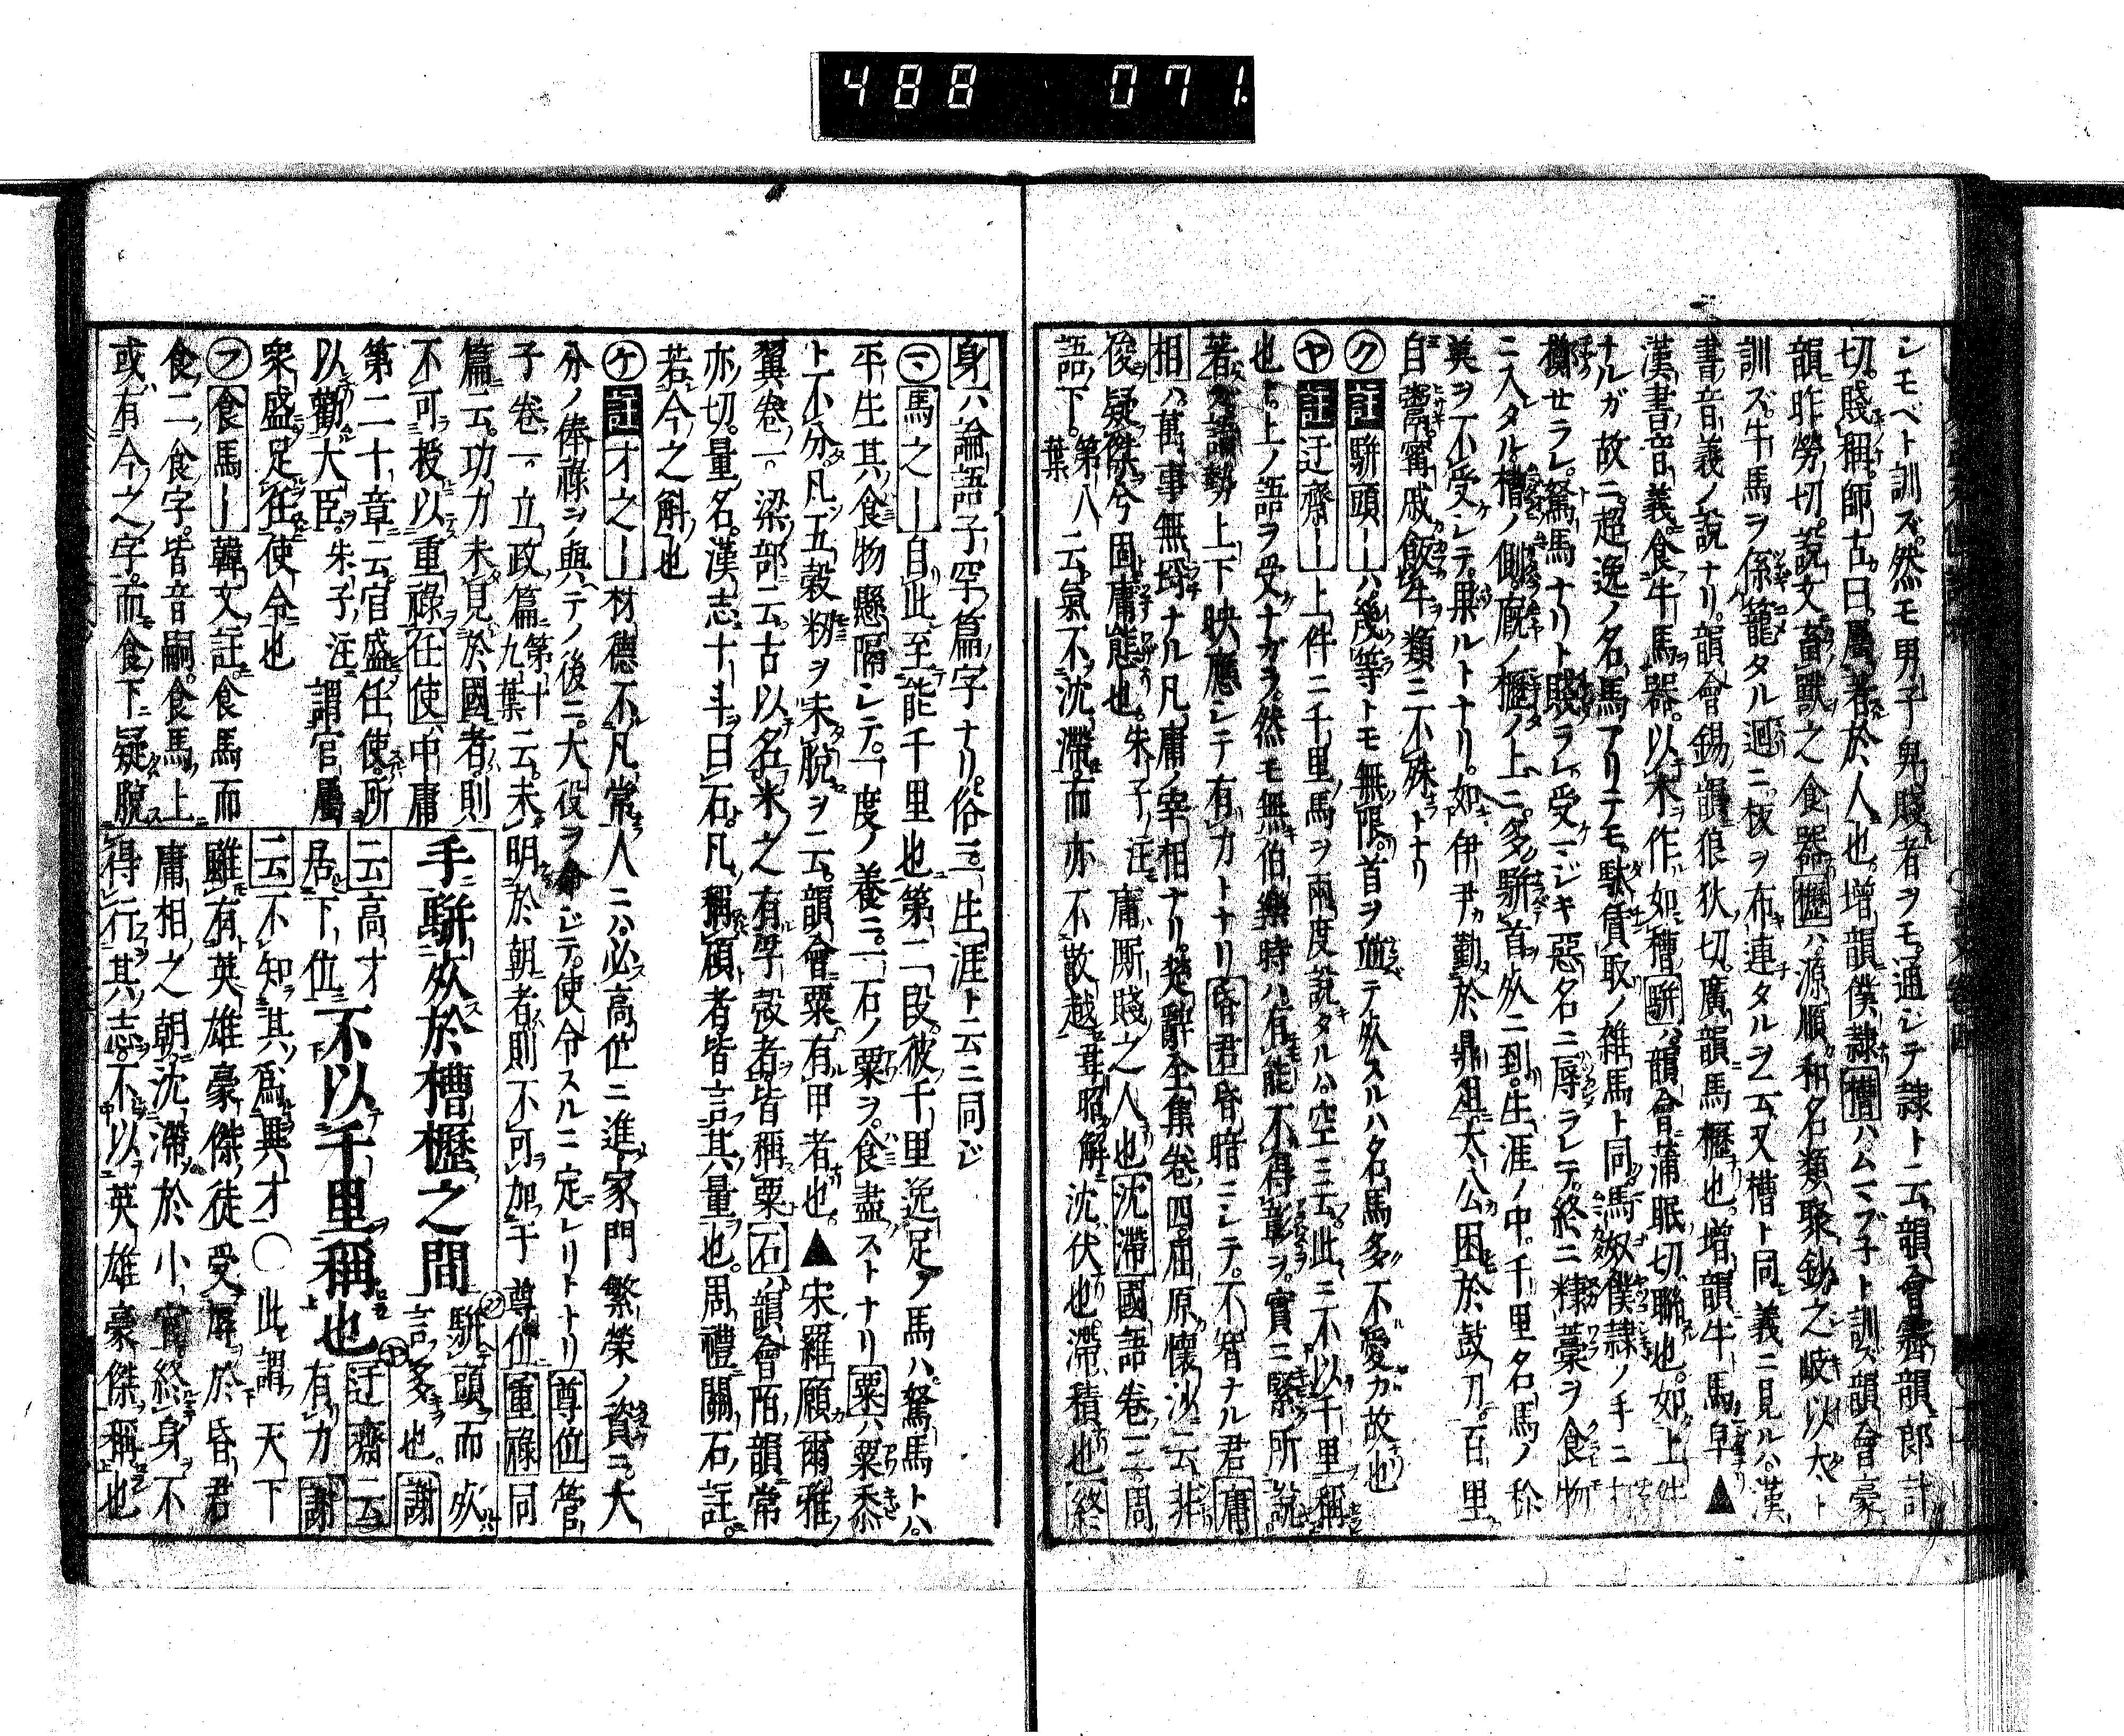 488 071.
シモベト訓ズ然モ男子卑賤者ヲモ通シテ隷ト云韻會霽韻郎計
切賤稱師古曰屬著於人也増韻僕隷槽ハムマブ子ト訓ス韻會豪
韻昨勞切説文畜獸之食器櫪ハ源順和名類聚鈔之岐以太ト
訓ズ牛馬ヲ係籠タル廻ニ板ヲ布連タルヲ云又槽ト同義ニ見ルハ漢
書音義ノ説ナリ韻會錫韻狼狄切廣韻馬櫪也増韻牛馬皁▲
漢書音義食牛馬器以木作如槽駢ハ韻會蒲眠切聯也如上件
ナルガ故ニ超逸ノ名馬アリテモ駄賃取ノ雜馬ト同馬奴僕隷ノ手ニ
セラレ駑馬ナリト賤ラレ受マジキ惡名ニ辱ラレテ終ニ糠藁ヲ食物
ニ入タル槽ノ側厩ノ櫪ノ上ニ多駢首死ニ到生涯ノ中千里名馬ノ称
美ヲ不受シテ果ルトナリ如伊尹勤於鼎俎太公困於鼓刀百里
自鬻甯戚飯牛類ニ不殊トナリ
ク註駢頭｜ハ幾等トモ無限首ヲ並テ死スルハ名馬多不愛カ故也
ヤ註迂齋｜上件ニ千里馬ヲ兩度説タルハ空ニ云此ニ不以千里稱
也ト上ノ語ヲ受ナガラ然モ無伯樂時ハ有能不得彰ヲ實ニ緊所説
著ス語勢上下映應シテ有力トナリ昏君昏暗ニシテ不智ナル君庸
相ハ萬事無埒ナル凡庸ノ宰相ナリ楚辭全集卷四屈原懷沙云非
俊疑傑兮固庸態也朱子注庸厮賤之人也沈滯國語卷三周
語下第八葉云氣不沈滯而亦不散越韋昭解沈伏也滯積也終
身ハ論語子罕篇字ナリ俗ニ三生涯ト云ニ同ジ
マ馬之｜自此至能千里也第二段彼千里逸足ノ馬ハ駑馬トハ
平生其食物懸隔シテ一度ノ養ニ一石ノ粟ヲ食盡ストナリ粟ハ粟黍
ト不分凡五穀籾ヲ未脱ヲ云韻會粟有甲者也▲宋羅願爾雅
翼卷一梁部云古以名米之有孚殻者皆稱粟石ハ韻會陌韻常
亦切量名漢志十斗曰石凡稱碩者皆言其量也周禮關石註
若今之斛也
ケ註才之｜材德不凡常人ニハ必高位ニ進家門繁榮ノ資ニ大
分ノ俸祿ヲ與テノ後ニ大役ヲ命ジテ使令スルニ定レリトナリ尊位管
子卷一立政篇第十九葉云未明於朝者則不可加于尊位重祿同
篇云功力未見於國者則
不可授以重祿任使中庸
第二十章云官盛任使所
以勸大臣朱子注謂官屬
衆盛足任使令也
フ食馬｜韓文註食馬而
食二食字皆音嗣食馬上
或有今之字而食下疑脱
手駢死於槽櫪之間ク駢頭而死言多也謝
云高才居下位不以千里稱也ヤ迂齋云有力謝
云不知其爲異才○此謂天下
雖有英雄豪傑徒受辱於昏君
庸相之朝沈滯於小官終身不
得行其志不以英雄豪傑稱也